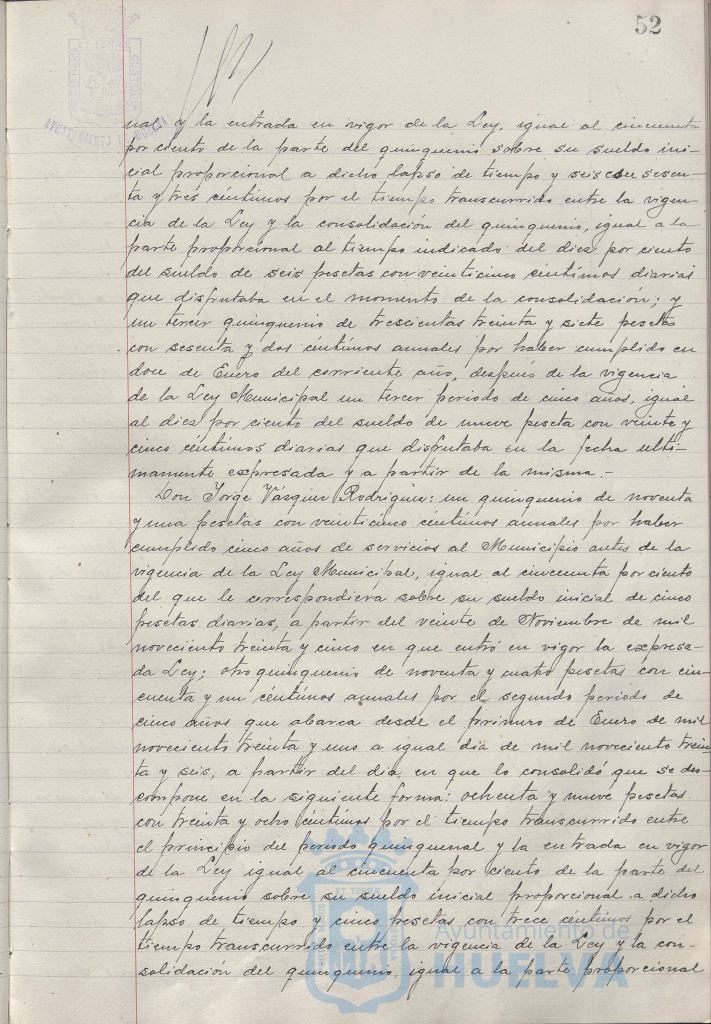 52
nal y la entrada en vigor de la Ley, igual al cincuenta
por ciento de la parte del quinquenio sobre su sueldo ini-
cial proporcional a dicho lapso de tiempo y seis sesen-
ta y tres céntimos por el tiempo transcurrido entre la vigen-
cia de la Ley y la consolidación del quinquenio, igual a la
parte proporcional al tiempo indicado del diez por ciento
del sueldo de seis pesetas con veinticinco céntimos diarias
que disfrutaba en el momento de la consolidación; y
un tercer quinquenio de trescientas treinta y siete pesetas
con sesenta y dos céntimos anuales por haber cumplido en
doce de Enero del corriente año, después de la vigencia
de la Ley Municipal un tercer periodo de cinco años, igual
al diez por ciento del sueldo de nueve peseta con veinte y
cinco céntimos diarias que disfrutaba en la fecha ulti-
mamente expresada y a partir de la misma.-
Don Jorge Vázquez Rodriguez: un quinquenio de noventa
y una pesetas con veinticinco céntimos anuales por haber
cumplido cinco años de servicios al Municipio antes de la
vigencia de la Ley Municipal, igual al cincuenta por ciento
del que le correspondiera sobre su sueldo inicial de cinco
pesetas diarias, a partir del veinte de Noviembre de mil
noveciento treinta y cinco en que entró en vigor la expresa-
da Ley; otro quinquenio de noventa y cuatro pesetas con cin-
cuenta y un céntimos anuales por el segundo periodo de
cinco años que abarca desde el primero de Enero de mil
noveciento treinta y uno a igual dia de mil noveciento trein-
ta y seis, a partir del dia en que lo consolidó que se des-
compone en la siguiente forma: ochenta y nueve pesetas
con treinta y ocho céntimos por el tiempo transcurrido entre
el principio del periodo quinquenal y la entrada en vigor
de la Ley igual al cincuenta por ciento de la parte del
quinquenio sobre su sueldo inicial proporcional a dicho
lapso de tiempo y cinco pesetas con trece céntimos por el
tiempo transcurrido entre la vigencia de la Ley y la con-
solidación del quinquenio, igual a la parte proporcional
Ayuntamiento de
HUELVA